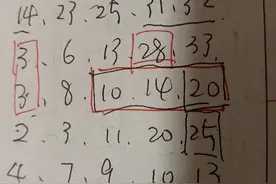 14. 23. 25. 31. 32
3. 6. 13. 28. 33.
3. 8. 10. 14. 20
2. 3. 11. 20. 25
4. 7. 9. 10. 13